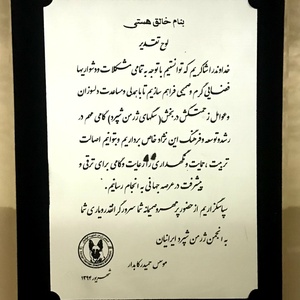 بنام خالق هستی
لوح تقدیر
خداوند را شاکریم که توانستیم با توجه به تمامی مشکلات و دشواریها
فضایی گرم و صمیمی فراهم سازیم تا با همدلی و مساعدت دلسوزان
و عوامل زحمتکش در بخش (سگهای ژرمن شپرد) گامی مهم در
رشد و توسعه و فرهنگ این نژاد خاص برداریم و بتوانیم اصالت
تربیت، حمایت و نگهداری را رعایت و گامی برای ترقی و
پیشرفت در عرصه جهانی به انجام رسانیم.
سپاسگزاریم از حضور پر مهر و صمیمانه شما سرور گرانقدر ویاری شما
به انجمن ژرمن شپرد ایرانیان
موسس حمید رکابدار
شهریور ۱۳۹۲